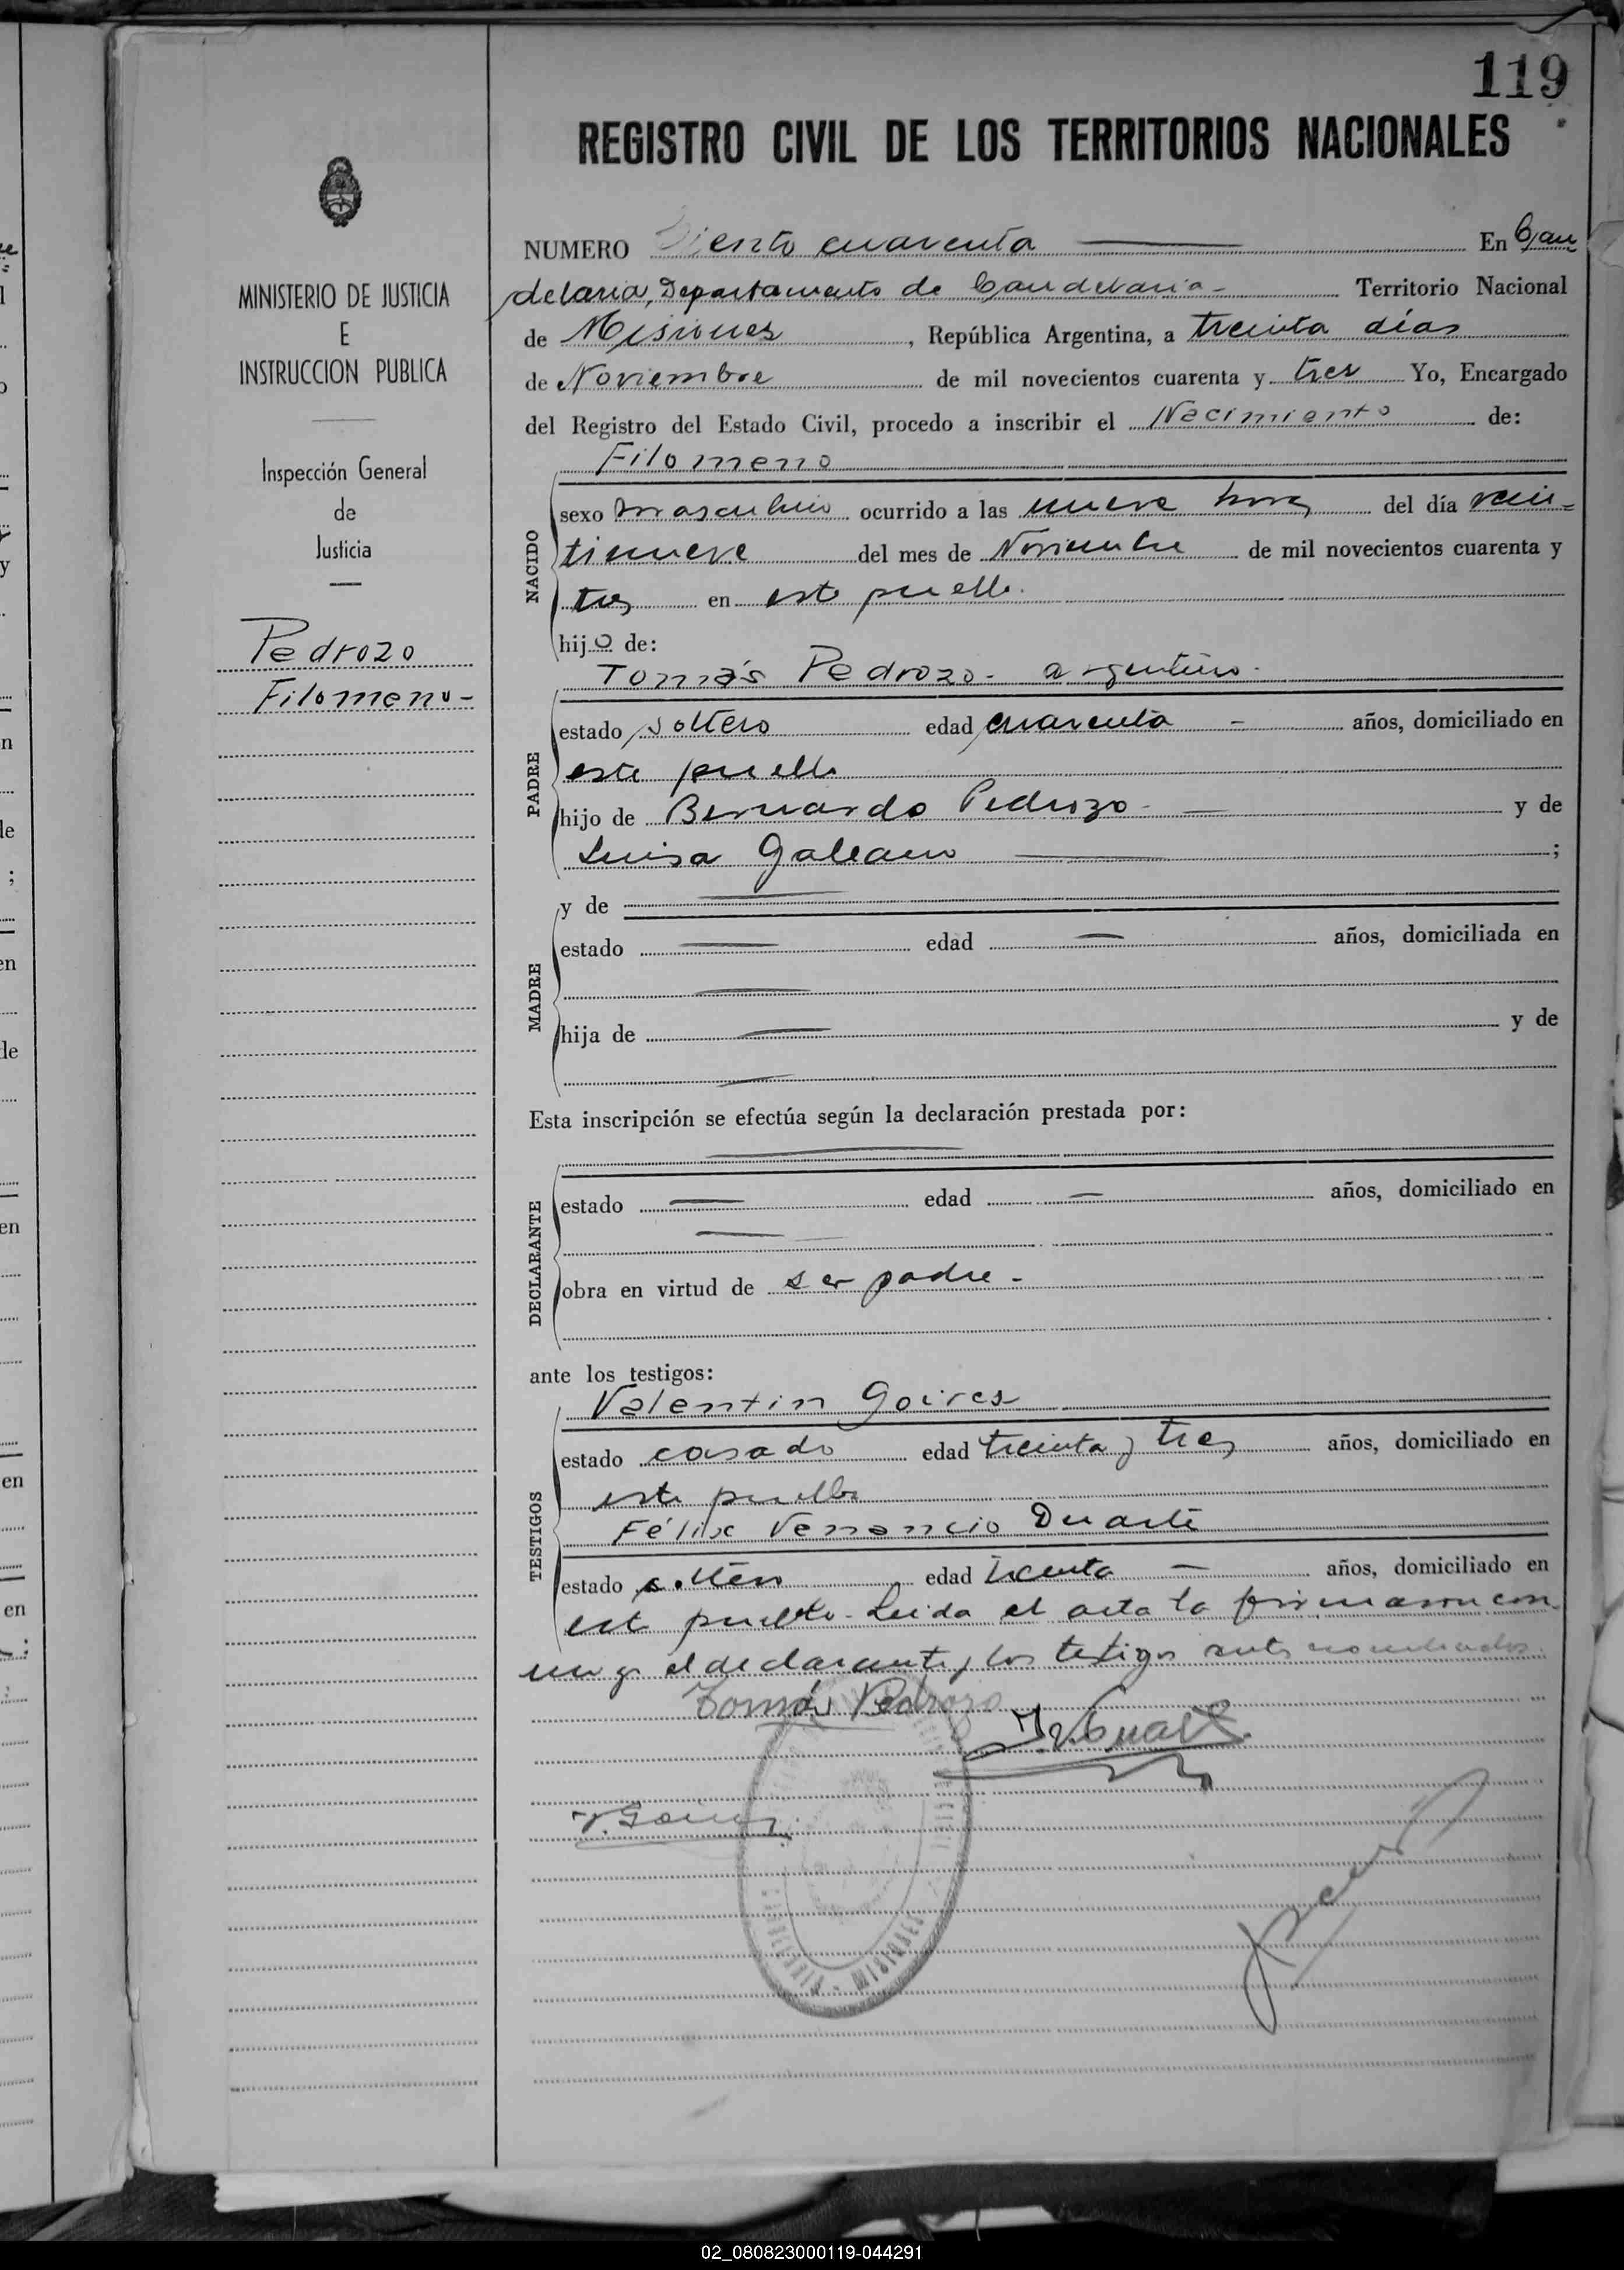 119
REGISTRO CIVIL DE LOS TERRITORIOS NACIONALES
MINISTERIO DE JUSTICIA
E
INSTRUCCION PUBLICA
Inspección General
de
Justicia
Pedrozo
Filomeno-
NUMERO Ciento cuarenta En Can
delaria, Departamento de Candelaria- Territorio Nacional
de Misiones, República Argentina, a treinta días
de Noviembre de mil novecientos cuarenta y tres Yo, Encargado
del Registro del Estado Civil, procedo a inscribir el Nacimiento de:
Filomeno
NACIDO
sexo masculino ocurrido a las nueve horas del día vein-
tinueve del mes de Noviembre de mil novecientos cuarenta y
tres en este pueblo.
hijo de:
Tomás Pedrozo- argentino-
PADRE
estado soltero edad cuarenta - años, domiciliado en
este pueblo
hijo de Bernardo Pedrozo- y de
Luisa Galeano ;
MADRE
y de
estado edad años, domiciliada en
hija de y de
Esta inscripción se efectúa según la declaración prestada por:
DECLARANTE
estado edad años, domiciliado en
obra en virtud de ser padre-
ante los testigos:
TESTIGOS
Valentin Goires
estado casado edad treinta y tres años, domiciliado en
este pueblo
Félix Venancio Duarte
estado soltero edad treinta - años, domiciliado en
este pueblo- Leida el acta la firmaron con
migo el declarante y los testigos antes nombrados.
Tomás Pedrozo
CANDELARIA - MISIONES
02_080823000119-044291